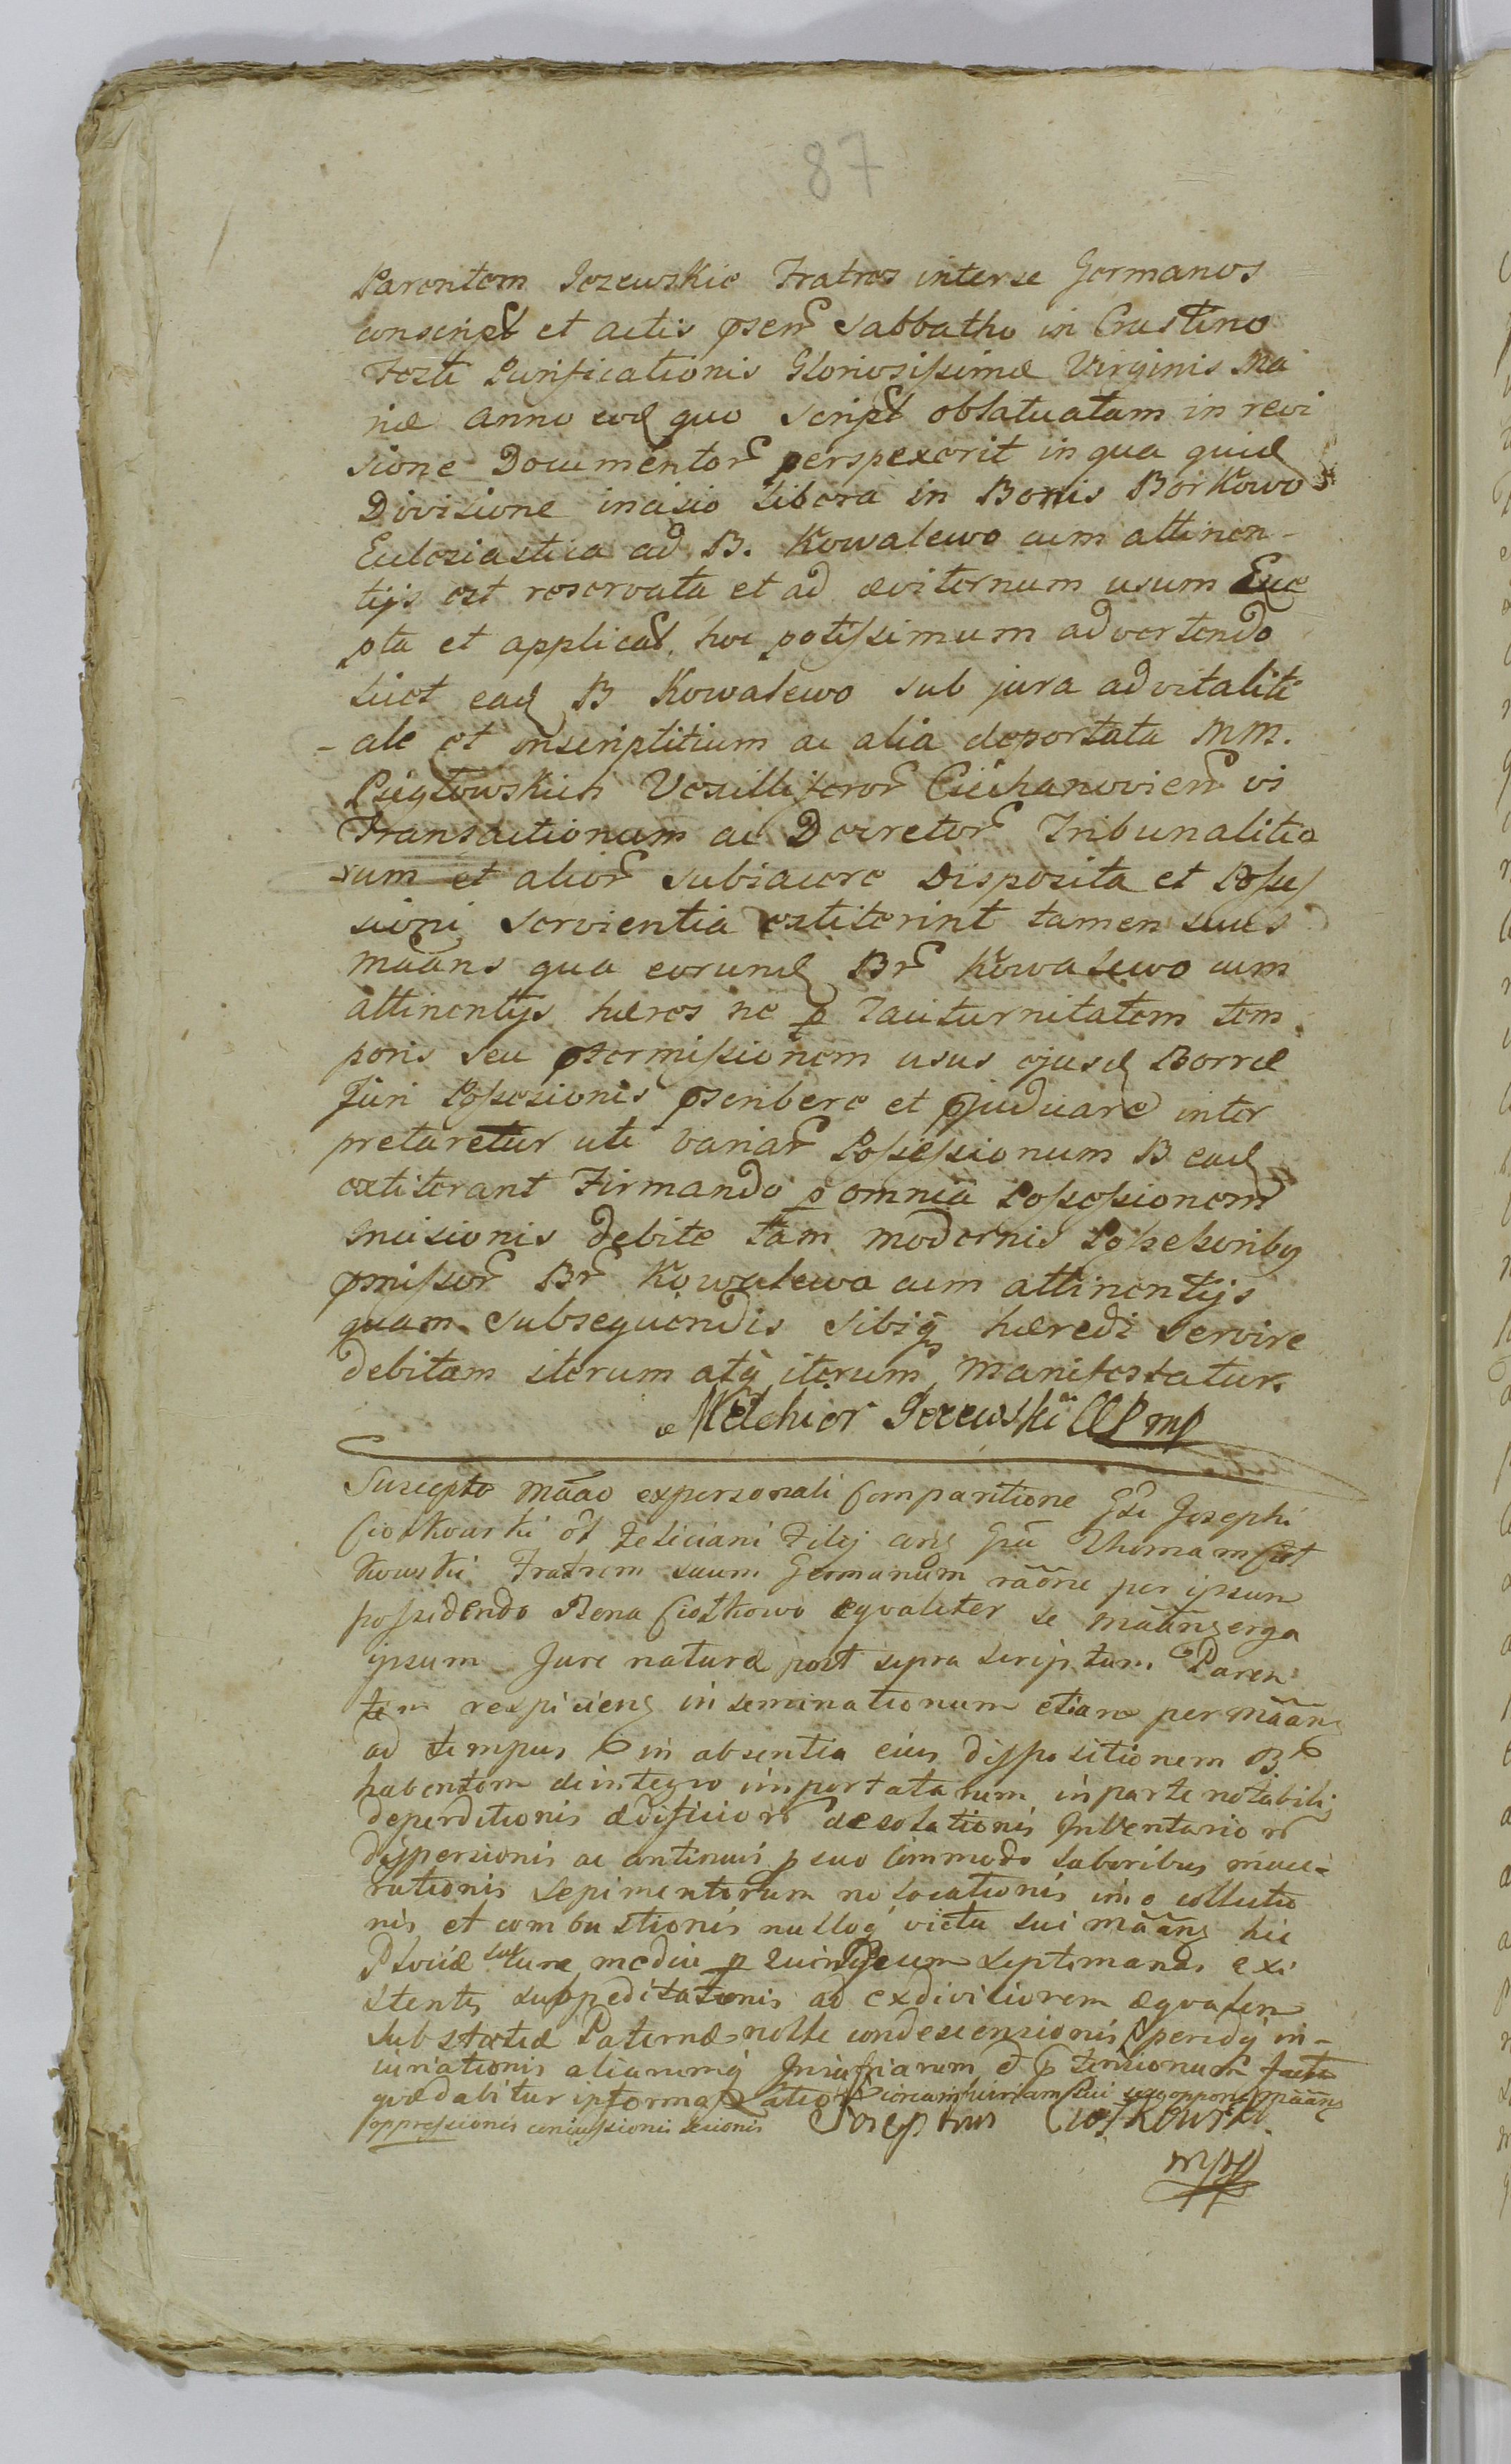 87
Parentem Jezewskie Fratres inter se Germanos
conscript et actis psen Sabbatho in Crastino
Festi Purificationis Gloriosissimæ Virginis Ma
riæ anno eod quo script oblatuatam in revi
sione Documentor perspexerit in qua quid
Divisione incisio libera in Bonis Borkowo
Ecclesiastica ad B. Kowalewo cum attinen-
tijs est reservata et ad æviternum usum
pta et applicat. hoc potissimum advertendo
licet ead B Kowalewo sub jura advitaliti
-ale et inscriptitium ac alia deportata MM.
Vexilliferor Ciechanovien vi
Transactionum ac Decretor Tribunalitio
rum et alior subiacere Disposita et Posses
sioni servientia extiterint tamen suus
maãns qua eorund Br Kowalewo cum
attinentijs hæres ne p Taciturnitatem tem
poris seu ptermissionem usus ejusd Borræ
Juri Possesionis pscribere et pjudicare inter
pretaretur uti variar Possessionum B ead
extiterant Firmando p omnia Possessionem
incisionis debite tam modernis Possessoribg
pmissor Br Kowalewo cum attinentijs
quam subsequendis sibiq hæredi servire
debitam iterum atq iterum Manifestatur.
Melchior Jezewski mp
Suscepto maão ex personali Comparitione Gsi Josephi
Ciołkowski ol Feliciani Filij Gsu Thomam Cioł
kowski Fratrem suum Germanum raõne per ipsum
possidendo Bona Ciołkowo æqualiter se maãns erga
ipsum Jure naturæ post supra scriptum Paren
tem respiciens inseminationum etiam per maãns
ad tempus in absentia eius dispositionem Br
habentem de integro importatarum in parte notabili
deperditionis ædificior desolationis Inventarior
dispersionis ac continuis p suo Commodo laboribus mace-
rationis sepimentorum no locationis imo collutio
nis et combustionis nulloq victu sui maãns hic
Plociæ mediu p quindecum septimanas exi
stentis suppeditationis ad exdivisionem æqualem
substatiæ Paternæ nolle condescensionis in-
iuriationis aliarumq Iniuriarum
quæ dabitur informat Latior maãns
oppressionis concussionis
Josephus Ciołkowski
mpp